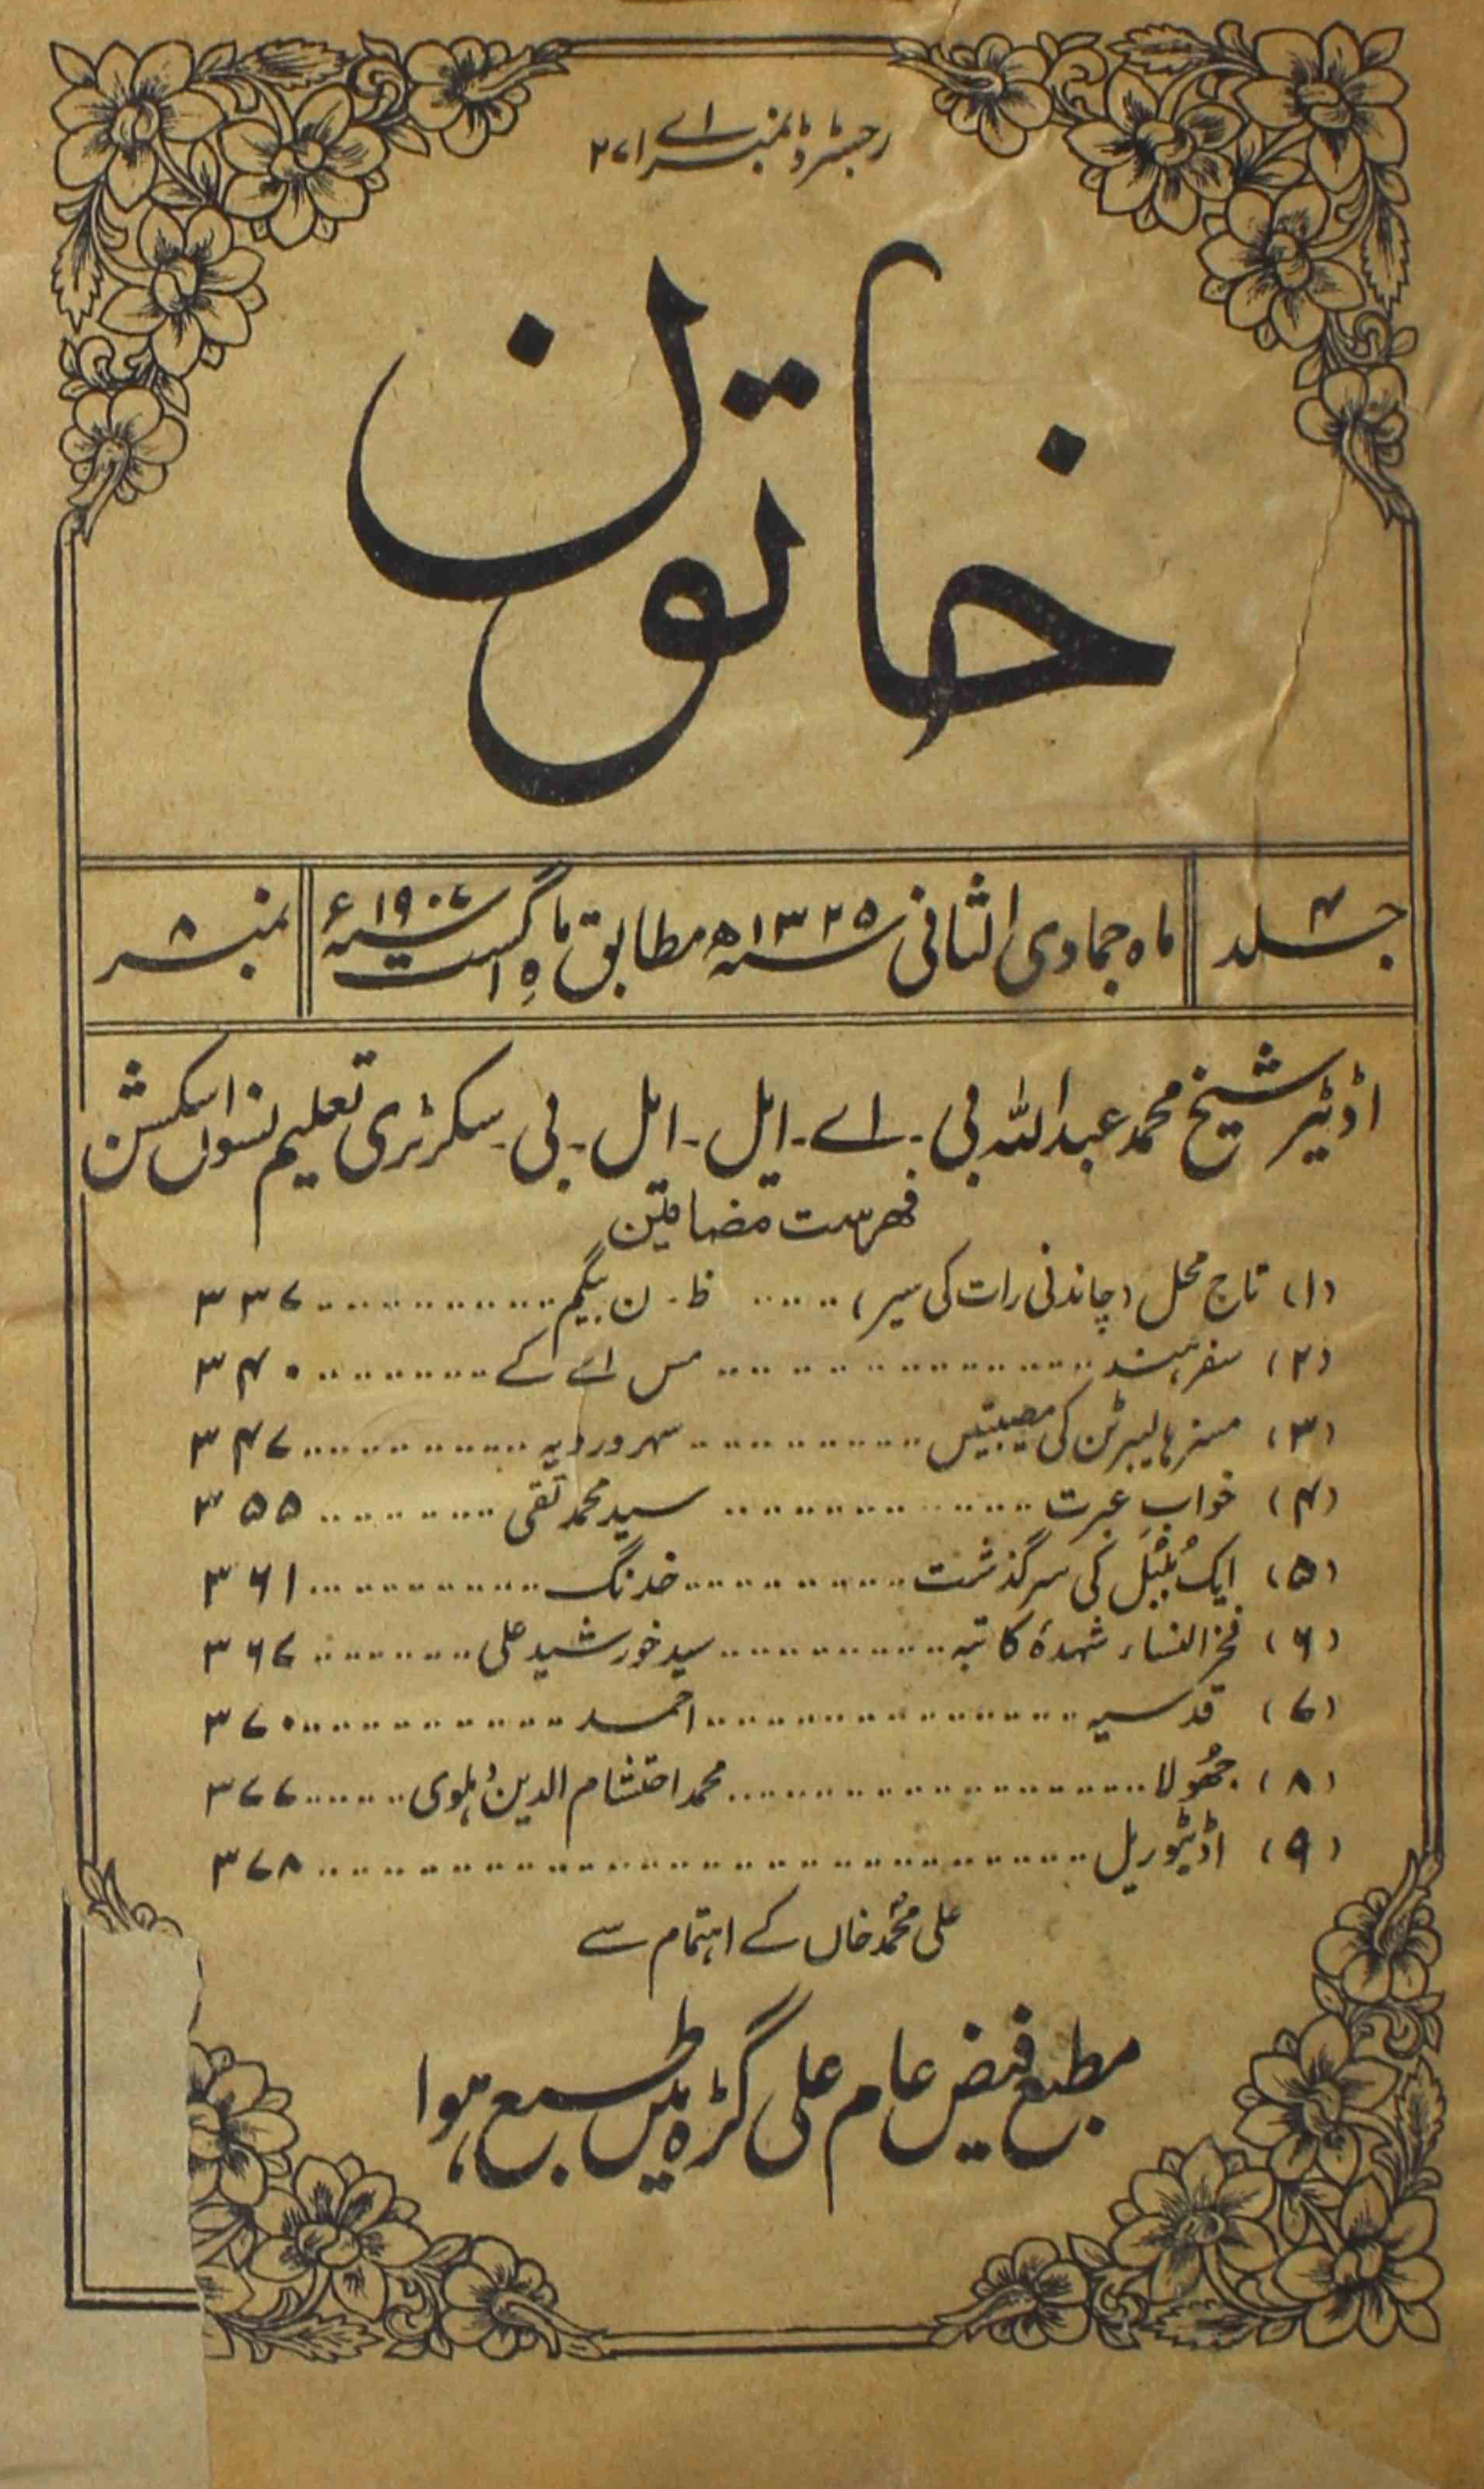 رجسٹرڈ نمبر اے ۲۷۱
خاتون
جلد ۴
ماہ جمادی الثانی سنہ ۱۳۲۵ھ مطابق ماہِ اگست سنہ ۱۹۰۷ء
نمبر ۸
اڈیٹر شیخ محمد عبداللہ بی۔ اے۔ ایل۔ ایل۔ بی۔ سکرٹری تعلیم نسواں سکشن
فہرست مضامین
(۱) تاج محل (چاندنی رات کی سیر) ...... ظ۔ ن بیگم ............ ۳۳۷
(۲) سفر ہند ............ مس اے کے ............ ۳۴۰
(۳) مسز ہالیبرٹن کی مصیبتیں ............ سہروردیہ ............ ۳۴۷
(۴) خوابِ عبرت ............ سید محمد تقی ............ ۳۵۵
(۵) ایک بُلبُل کی سرگذشت ............ خدنگ ............ ۳۶۱
(۶) فخر النساء شہدۂ کاتبہ ............ سید خورشید علی ............ ۳۶۷
(۷) قدسیہ ............ احمد ............ ۳۷۰
(۸) جھُولا ............ محمد احتشام الدین دہلوی ............ ۳۷۷
(۹) اڈیٹوریل ............ ۳۷۸
علی محمد خاں کے اہتمام سے
مطبع فیض عام علی گڑہ میں طبع ہوا